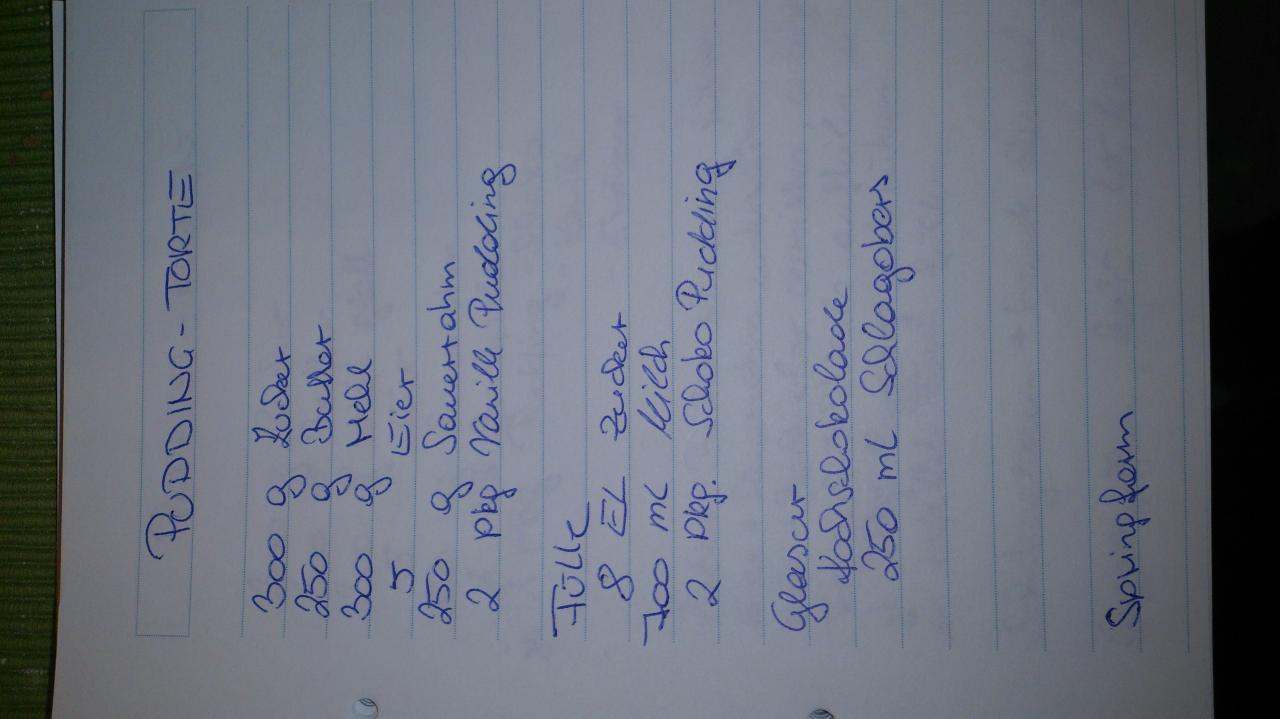 PUDDING-TORTE
300 g Zucker
250 g Butter
300 g Mehl
5 Eier
250 g Sauerrahm
2 Pkg Vanille Pudding
Fülle
8 EL Zucker
700 mL Milch
2 Pkg. Schoko Pudding
Glasur
Kochschokolade
250 mL Schlagobers
Springform